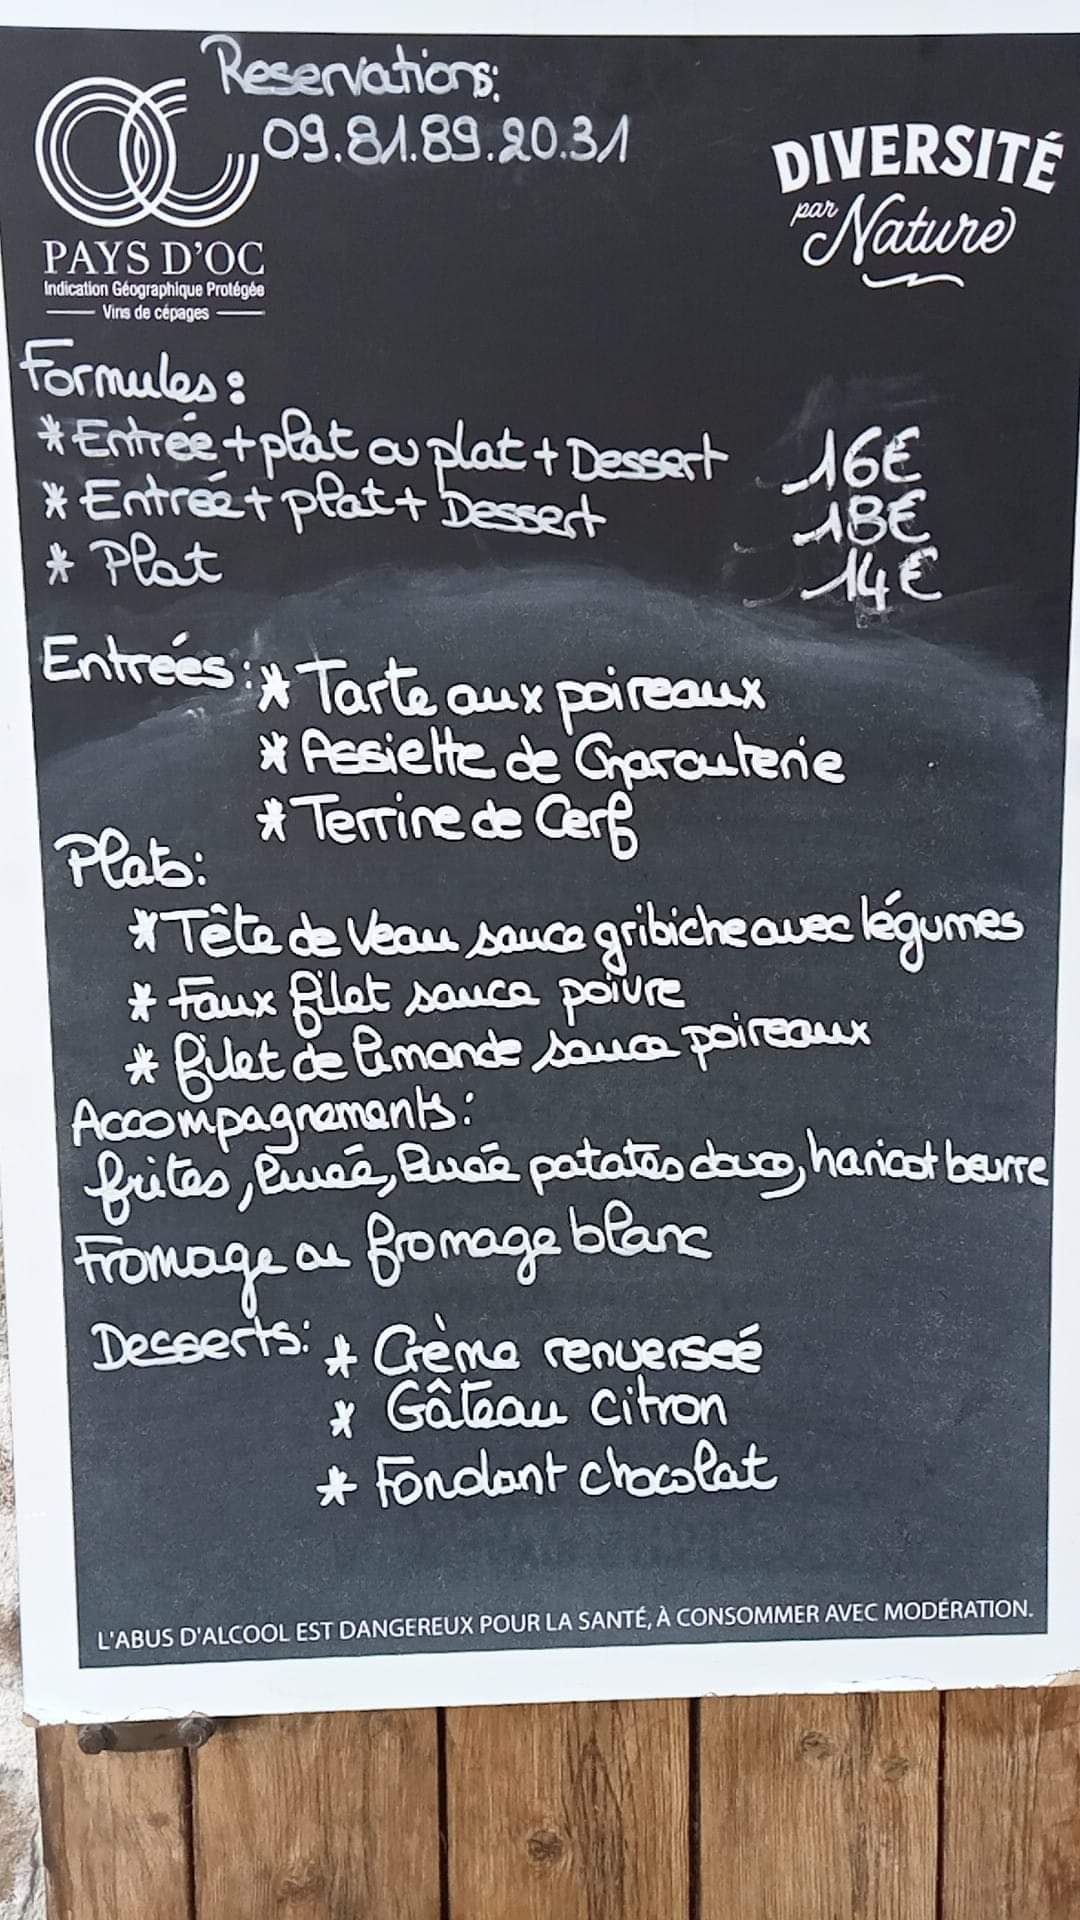 Reservations:
09.81.89.20.31
PAYS D'OC
Indication Géographique Protégée
Vins de cépages
DIVERSITÉ
par Nature
Formules:
* Entrée + plat ou plat + Dessert 16€
* Entreé + plat + Dessert 18€
* Plat 14€
Entreés: * Tarte aux poireaux
* Assiette de Charcuterie
* Terrine de Cerf
Plats:
* Tête de Veau sauce gribiche avec légumes
* Faux filet sauce poivre
* filet de limande sauce poireaux
Accompagnements:
frites, Pureé, Pureé patates douce, haricot beurre
Fromage ou fromage blanc
Desserts: * Crème renverseé
* Gâteau citron
* Fondant chocolat
L'ABUS D'ALCOOL EST DANGEREUX POUR LA SANTÉ, À CONSOMMER AVEC MODÉRATION.